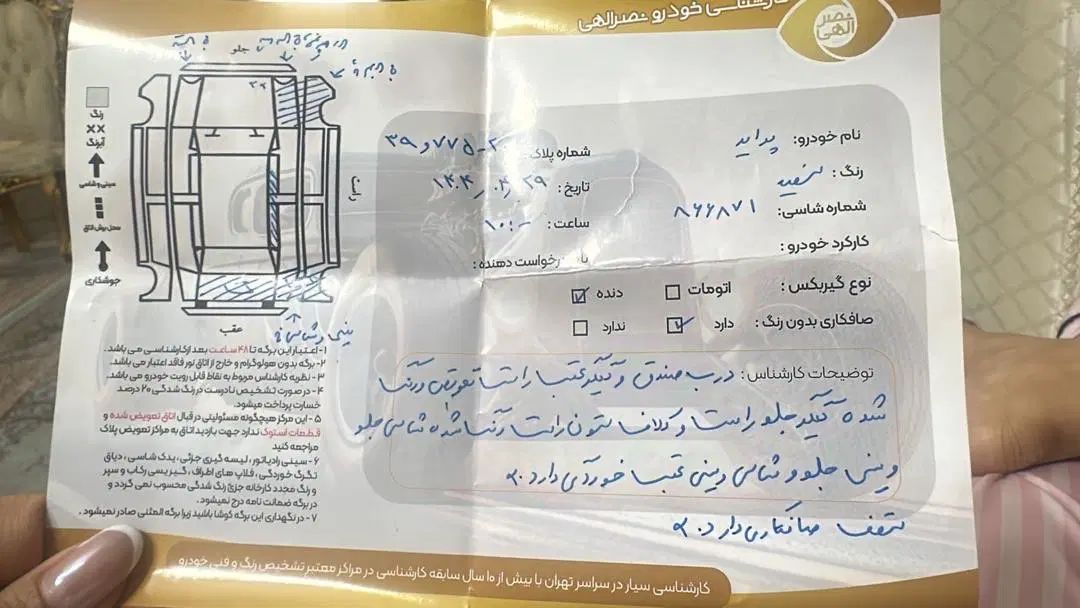 کارشناسی خودرو نصرالهی
نصر الهی
نام خودرو: پراید
شماره پلاک
رنگ: سفید
تاریخ: ۱۴۰۴/۰۴/۲۹
شماره شاسی: ۸۶۶۸۷۱
ساعت: ۱۰:۰۰
کارکرد خودرو:
درخواست دهنده:
نوع گیربکس: اتومات دنده
صافکاری بدون رنگ: دارد ندارد
توضیحات کارشناس: درب صندوق و گلگیر عقب راست تعویض و رنگ
شده گلگیر جلو راست و کلاف ستون راست رنگ شده شاسی جلو
و سینی جلو و شاسی و سینی عقب خوردگی دارد.
سقف صافکاری دارد.
جلو
رنگ
xx
آبرنگ
سینی و شاسی
محل برش اتاق
جوشکاری
راست
عقب
سینی و شاسی
۱- اعتبار این برگه تا ۴۸ ساعت بعد از کارشناسی می باشد.
۲- برگه بدون هولوگرام و خارج از اتاق نور فاقد اعتبار می باشد.
۳- نظریه کارشناس مربوط به نقاط قابل رویت خودرو می باشد.
۴- در صورت تشخیص نادرست در رنگ شدگی ۲۰ درصد
خسارت پرداخت میشود.
۵- این مرکز هیچگونه مسئولیتی در قبال اتاق تعویض شده و
قطعات استوک ندارد جهت بازدید اتاق به مراکز تعویض پلاک
مراجعه کنید
۶- سینی رادیاتور، لیسه گیری جزئی، یدک شاسی، دیاق
تگرگ خوردگی، قلاب های اطراف، گیریسی رکاب و سپر
و رنگ مجدد کارخانه جزئ رنگ شدگی محسوب نمی گردد و
در برگه ضمانت نامه درج نمیشود.
۷- در نگهداری این برگه کوشا باشید زیرا برگه المثنی صادر نمیشود.
کارشناسی سیار در سراسر تهران با بیش از ۱۰ سال سابقه کارشناسی در مراکز معتبر تشخیص رنگ و فنی خودرو